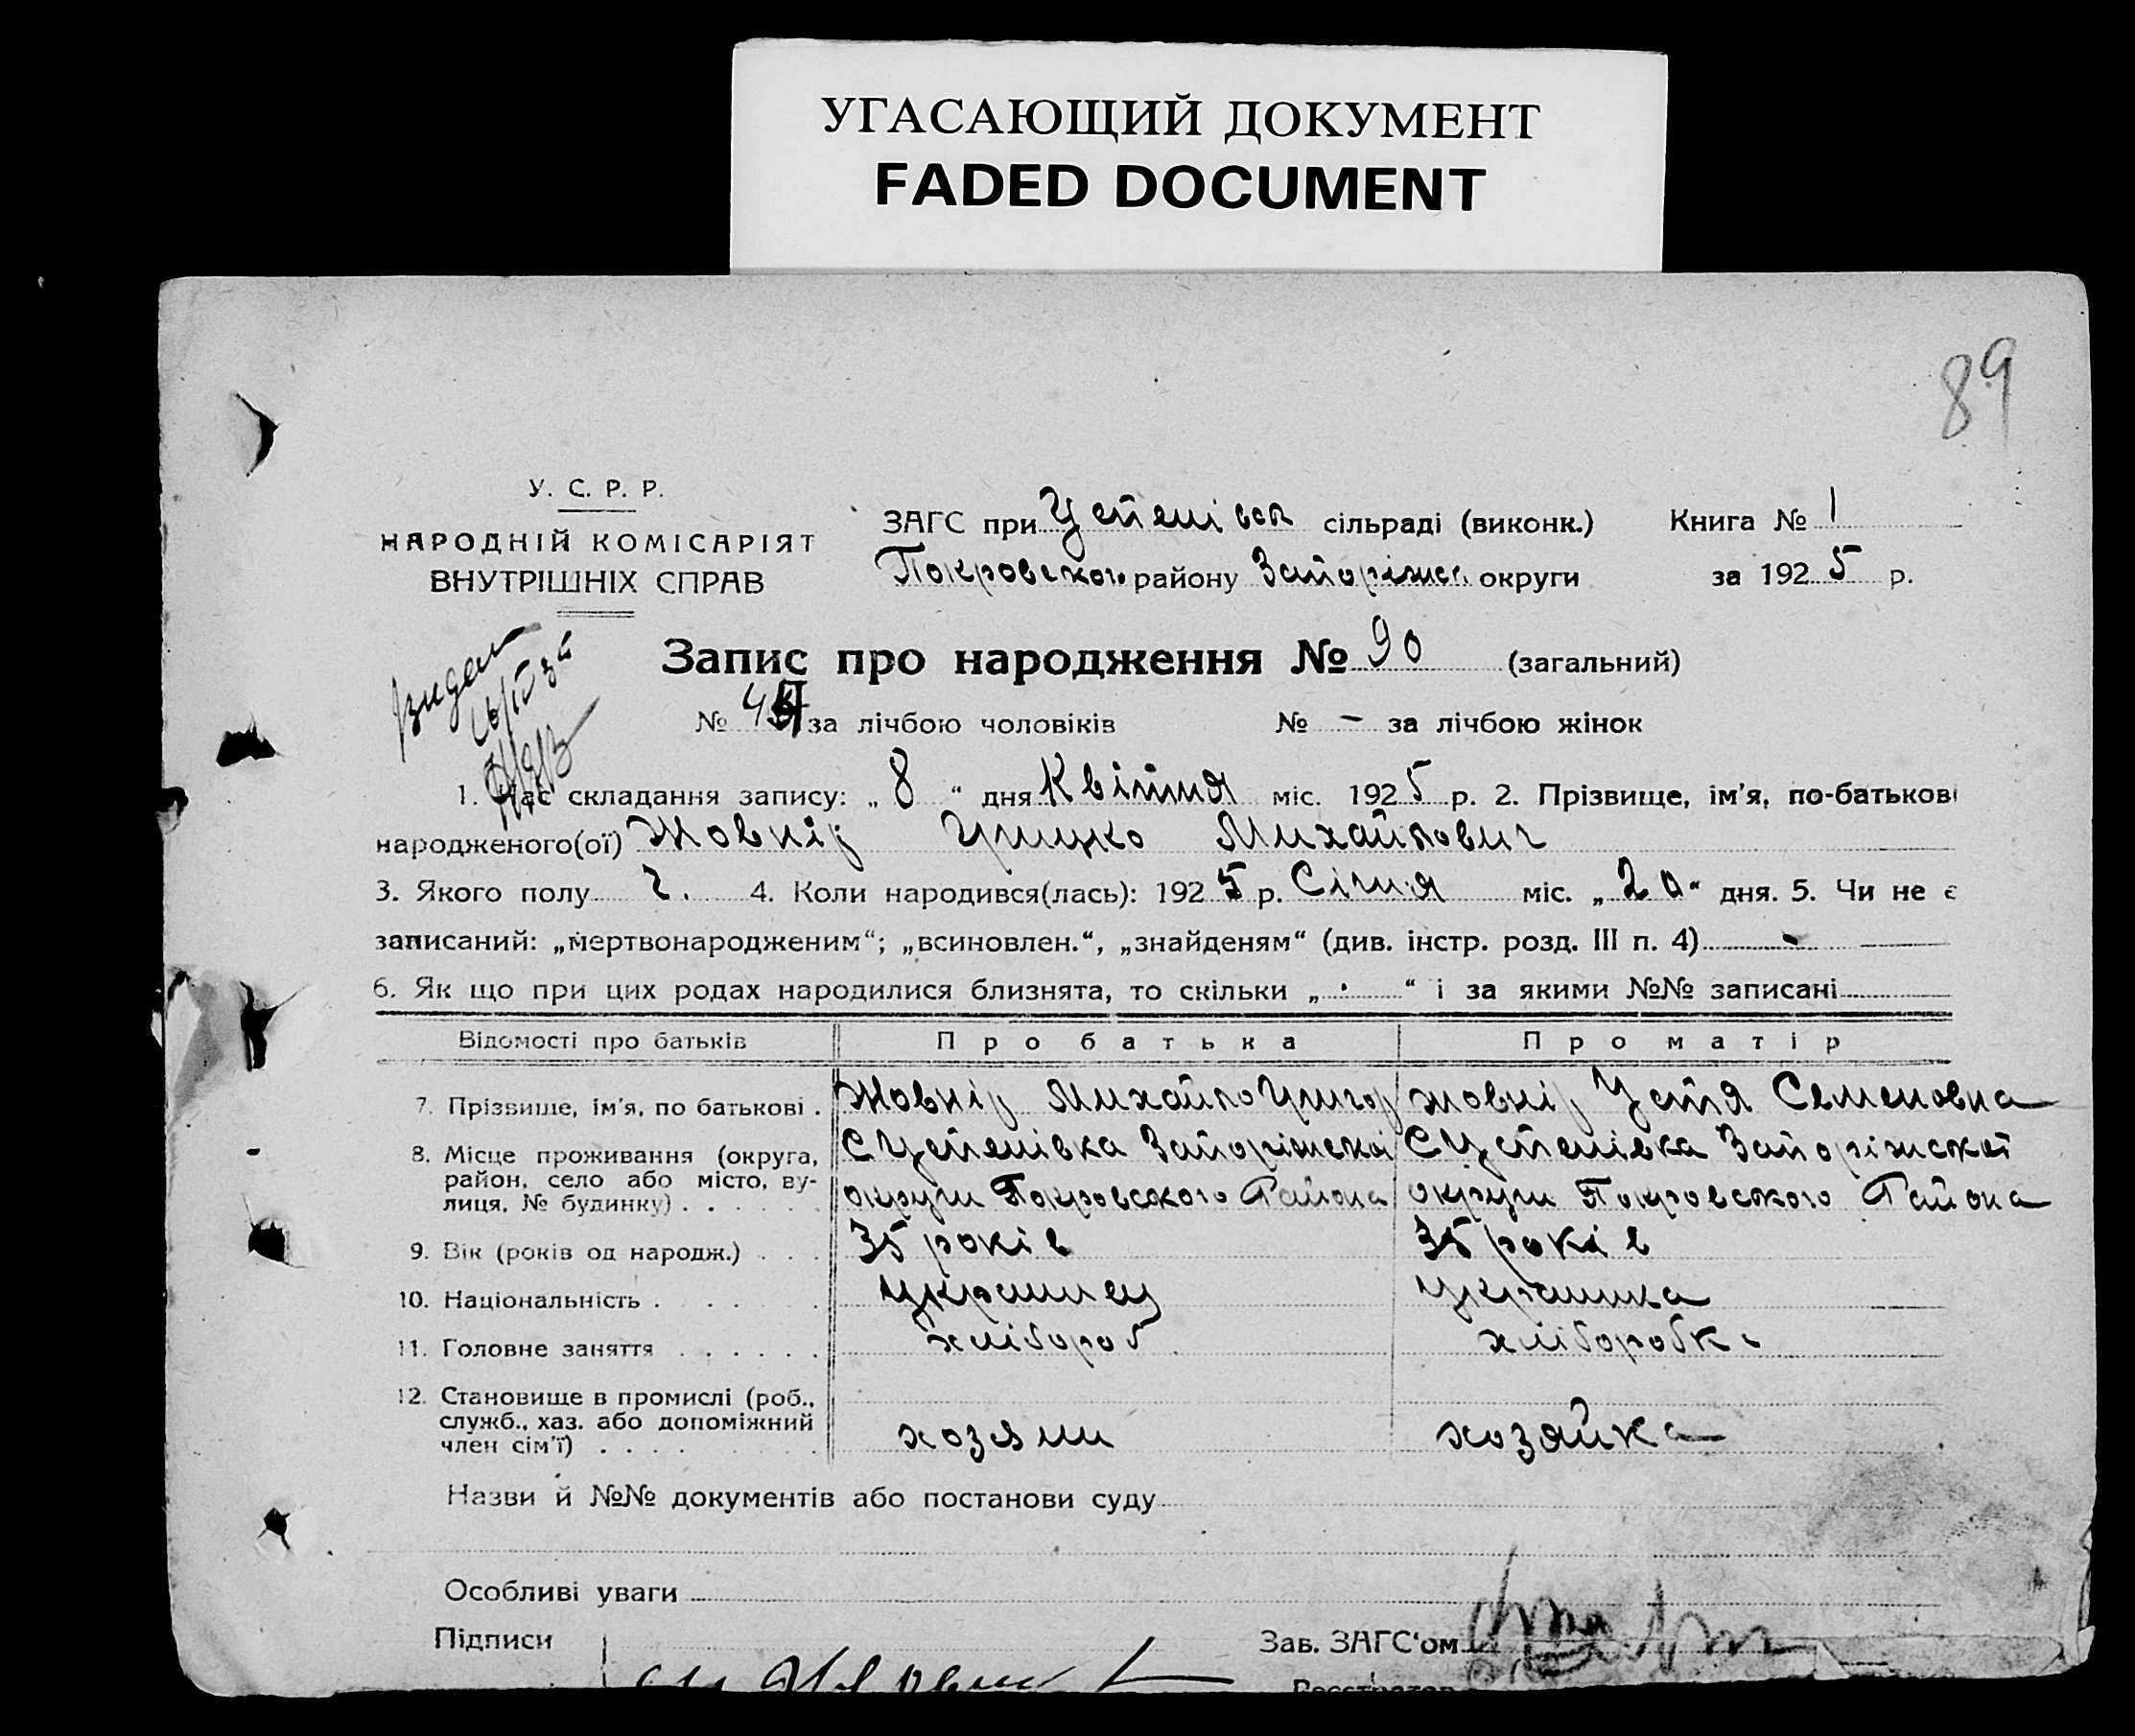 УГАСАЮЩИЙ ДОКУМЕНТ
FADED DOCUMENT
89
У. С. Р. Р.
НАРОДНІЙ КОМІСАРІЯТ
ВНУТРІШНІХ СПРАВ
ЗАГС при Успенівск сільраді (виконк.) Книга № 1
Покровского району Запоріжс. округи за 1925 р.
Запис про народження № 90 (загальний)
№ за лічбою чоловіків № - за лічбою жінок
1. Час складання запису: „8“ дня Квітня міс. 1925 р. 2. Прізвище, ім'я, по-батькові
народженого(ої) Жовнір Грицко Михайлович
3. Якого полу ч. 4. Коли народився(лась): 1925 р. Січня міс. „20“ дня. 5. Чи не є
записаний: „мертвонародженим“; „всиновлен.“, „знайденям“ (див. інстр. розд. III п. 4) -
6. Як що при цих родах народилися близнята, то скільки „ “ і за якими №№ записані
Відомості про батьків Про батька Про матір
7. Прізвище, ім'я, по батькові . Жовнір Михайло Григор жовнір Устя Семеновна
8. Місце проживання (округа, С Успенівка Запоріжскої С Успенівка Запоріжскої
район, село або місто, ву-
лиця, № будинку) . . . . . . округи Покровского Района округи Покровского Района
9. Вік (років од народж.) . . . 35 років 35 років
10. Національність . . . . . . украинец украинка
11. Головне заняття . . . . . . хлібороб хліборобка
12. Становище в промислі (роб.,
служб., хаз. або допоміжний
член сім'ї) . . . . . . хозяин хозяйка
Назви й №№ документів або постанови суду
Особливі уваги
Підписи Зав. ЗАГС'ом
Реєстратор